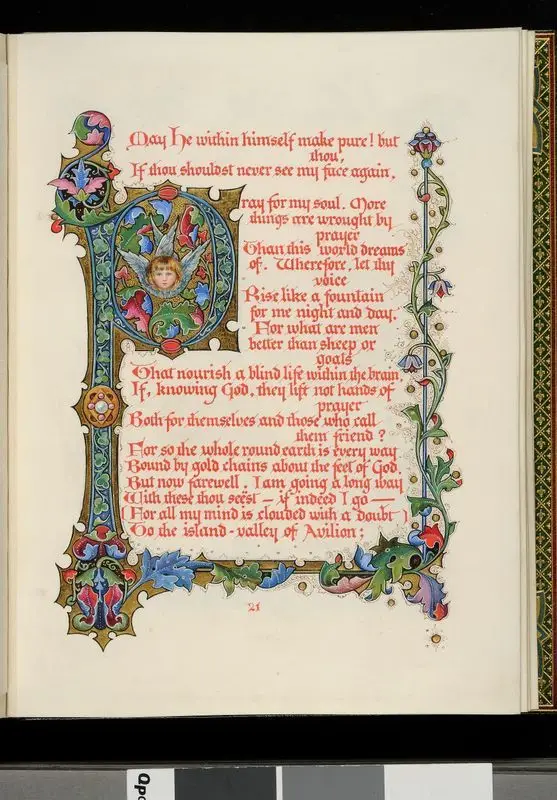 May He within himself make pure! but
thou,
If thou shouldst never see my face again,
Pray for my soul. More
things are wrought by
prayer
Than this world dreams
of. Wherefore, let thy
voice
Rise like a fountain
for me night and day.
For what are men
better than sheep or
goats
That nourish a blind life within the brain,
If, knowing God, they lift not hands of
prayer
Both for themselves and those who call
them friend?
For so the whole round earth is every way
Bound by gold chains about the feet of God.
But now farewell. I am going a long way
With these thou seëst — if indeed I go —
(For all my mind is clouded with a doubt)
To the island-valley of Avilion;
21
Op